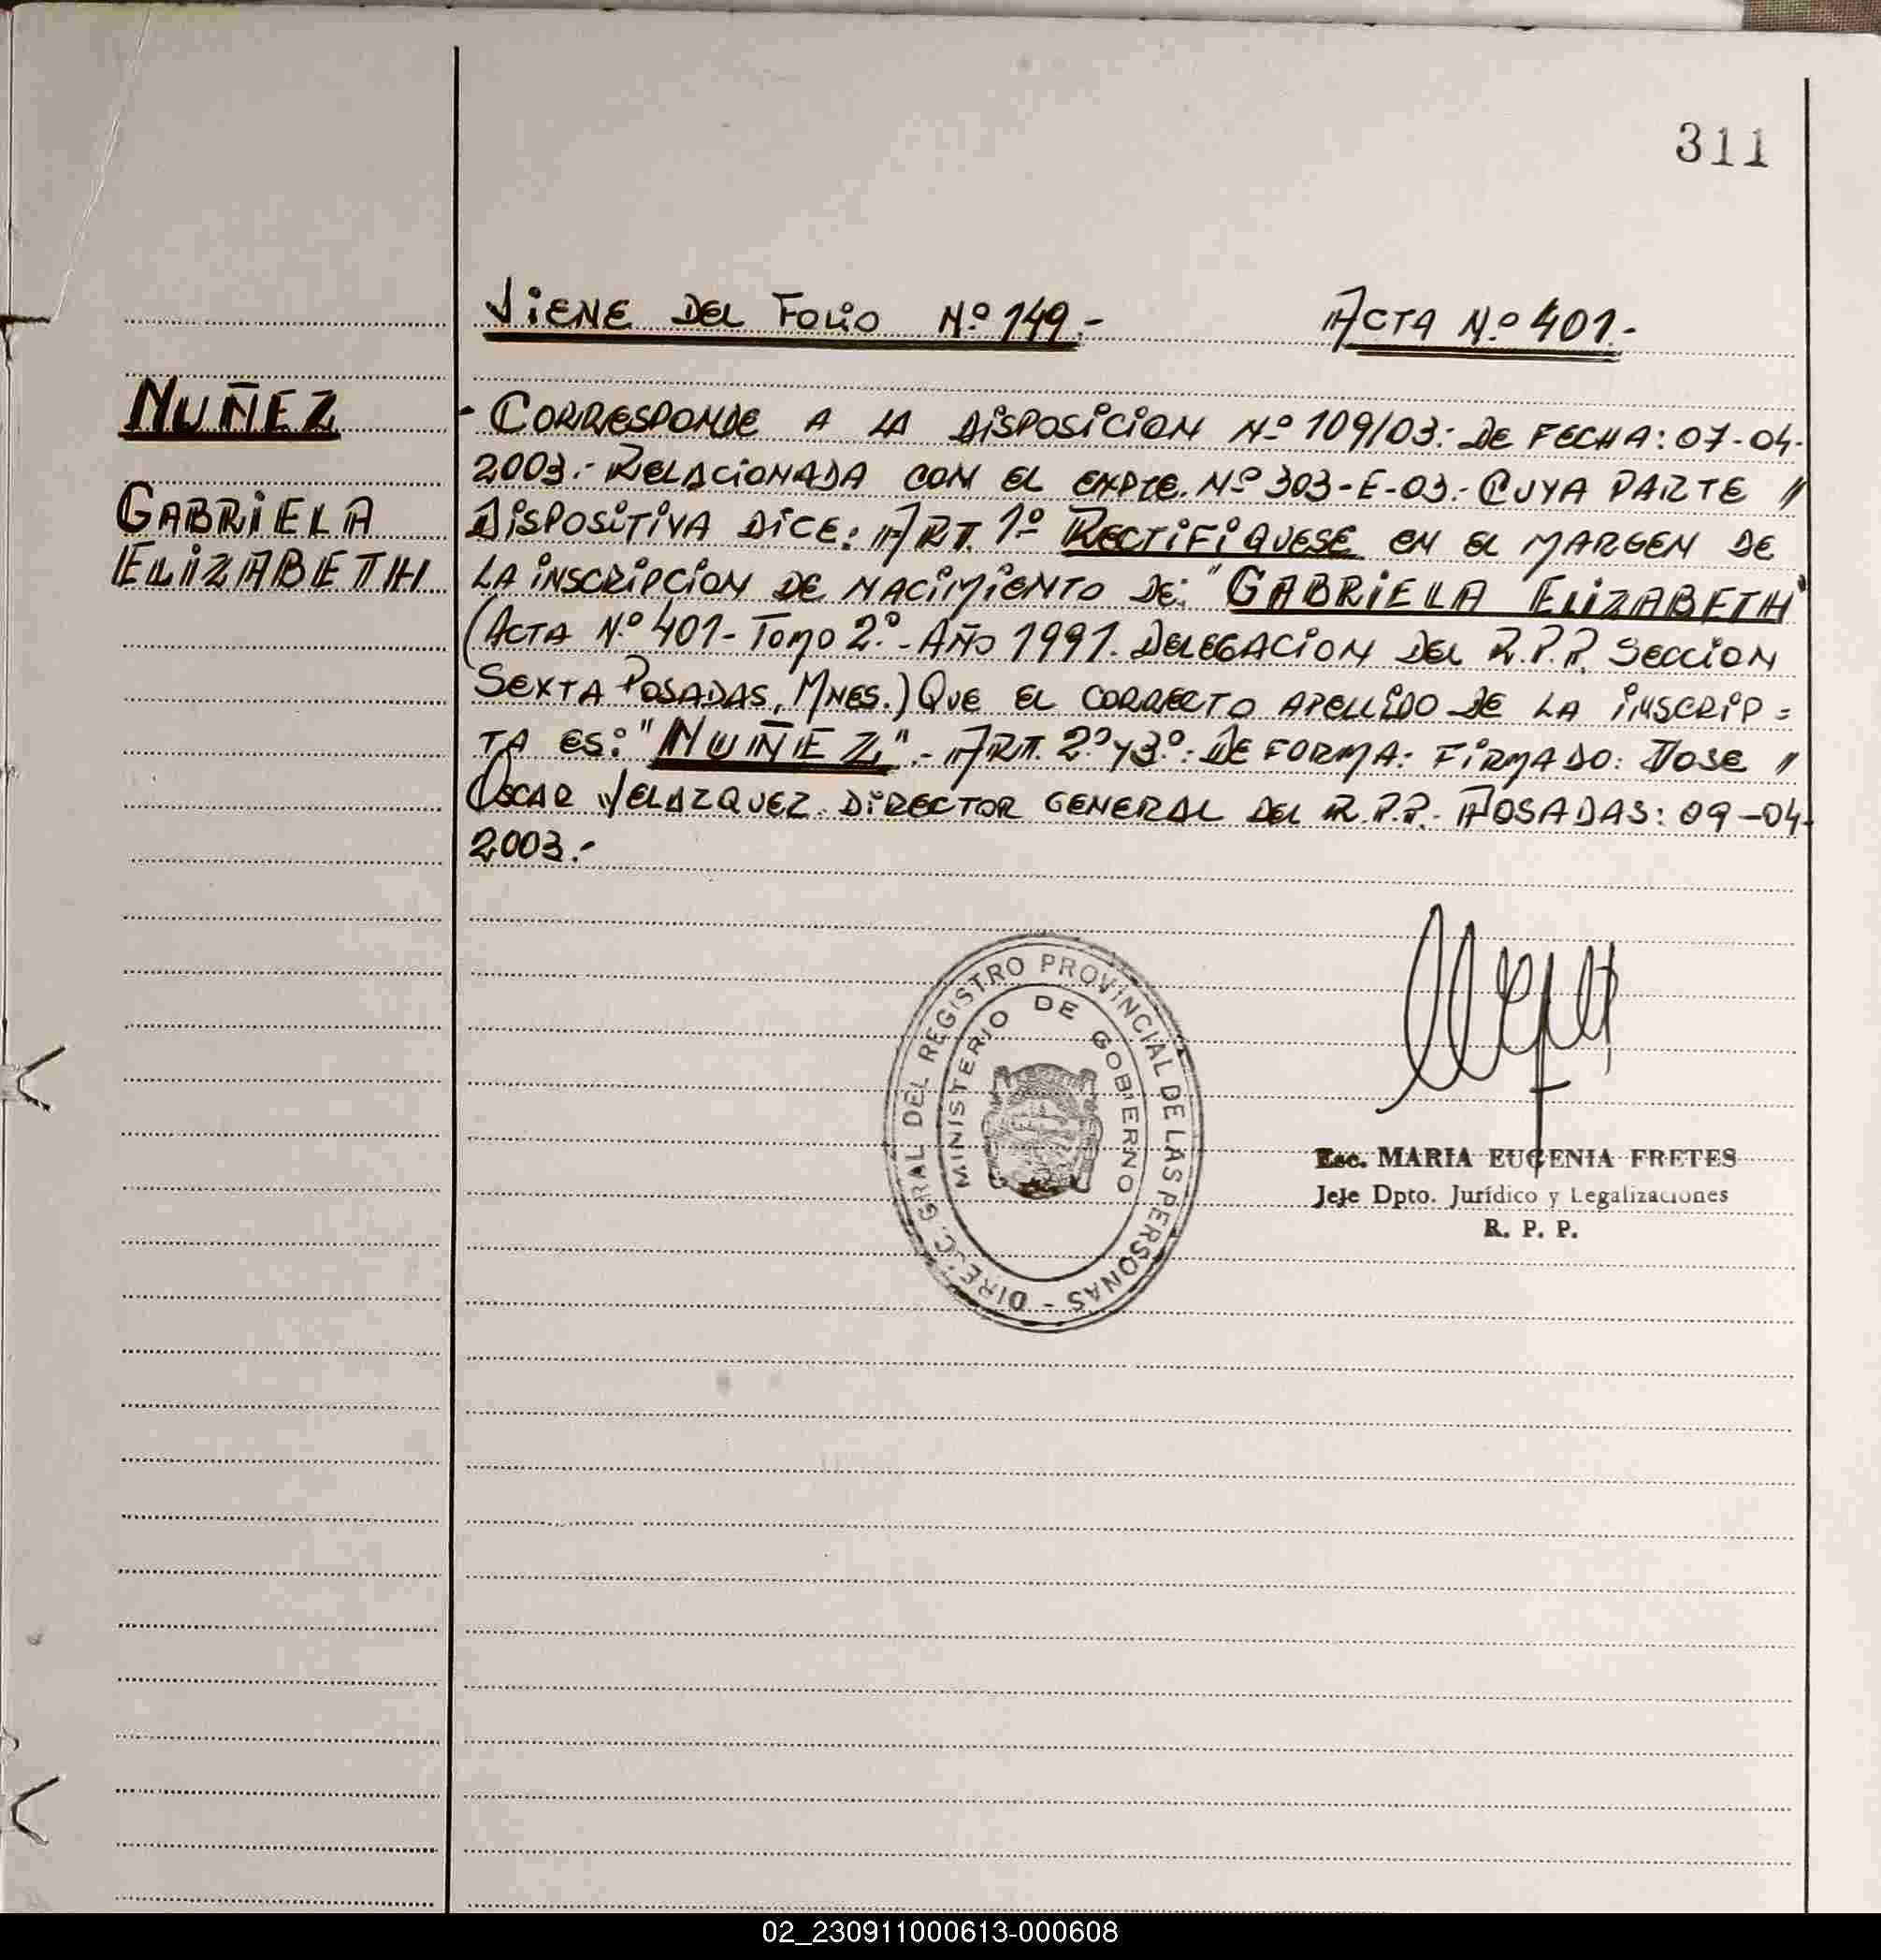 311
VIENE DEL FOLIO Nº 149.-
ACTA Nº 401.-
NUÑEZ
GABRIELA
ELIZABETH
- CORRESPONDE A LA DISPOSICION Nº 109/03: DE FECHA: 07-04-
2003.- RELACIONADA CON EL EXPTE. Nº 303-E-03.- CUYA PARTE //
DISPOSITIVA DICE: ART. 1º RECTIFIQUESE EN EL MARGEN DE
LA INSCRIPCION DE NACIMIENTO DE: "GABRIELA ELIZABETH"
(ACTA Nº 401- TOMO 2º.- AÑO 1991. DELEGACION DEL R.P.P. SECCION
SEXTA POSADAS, MNES.) QUE EL CORRECTO APELLIDO DE LA INSCRIP=
TA ES: "NUÑEZ".- ART. 2º Y 3º: DE FORMA: FIRMADO: JOSE //
OSCAR VELAZQUEZ. DIRECTOR GENERAL DEL R.P.P.- POSADAS: 09-04-
2003.-
DIREC. GRAL DEL REGISTRO PROVINCIAL DE LAS PERSONAS -
MINISTERIO DE GOBIERNO
Esc. MARIA EUGENIA FRETES
Jefe Dpto. Jurídico y Legalizaciones
R. P. P.
02_230911000613-000608